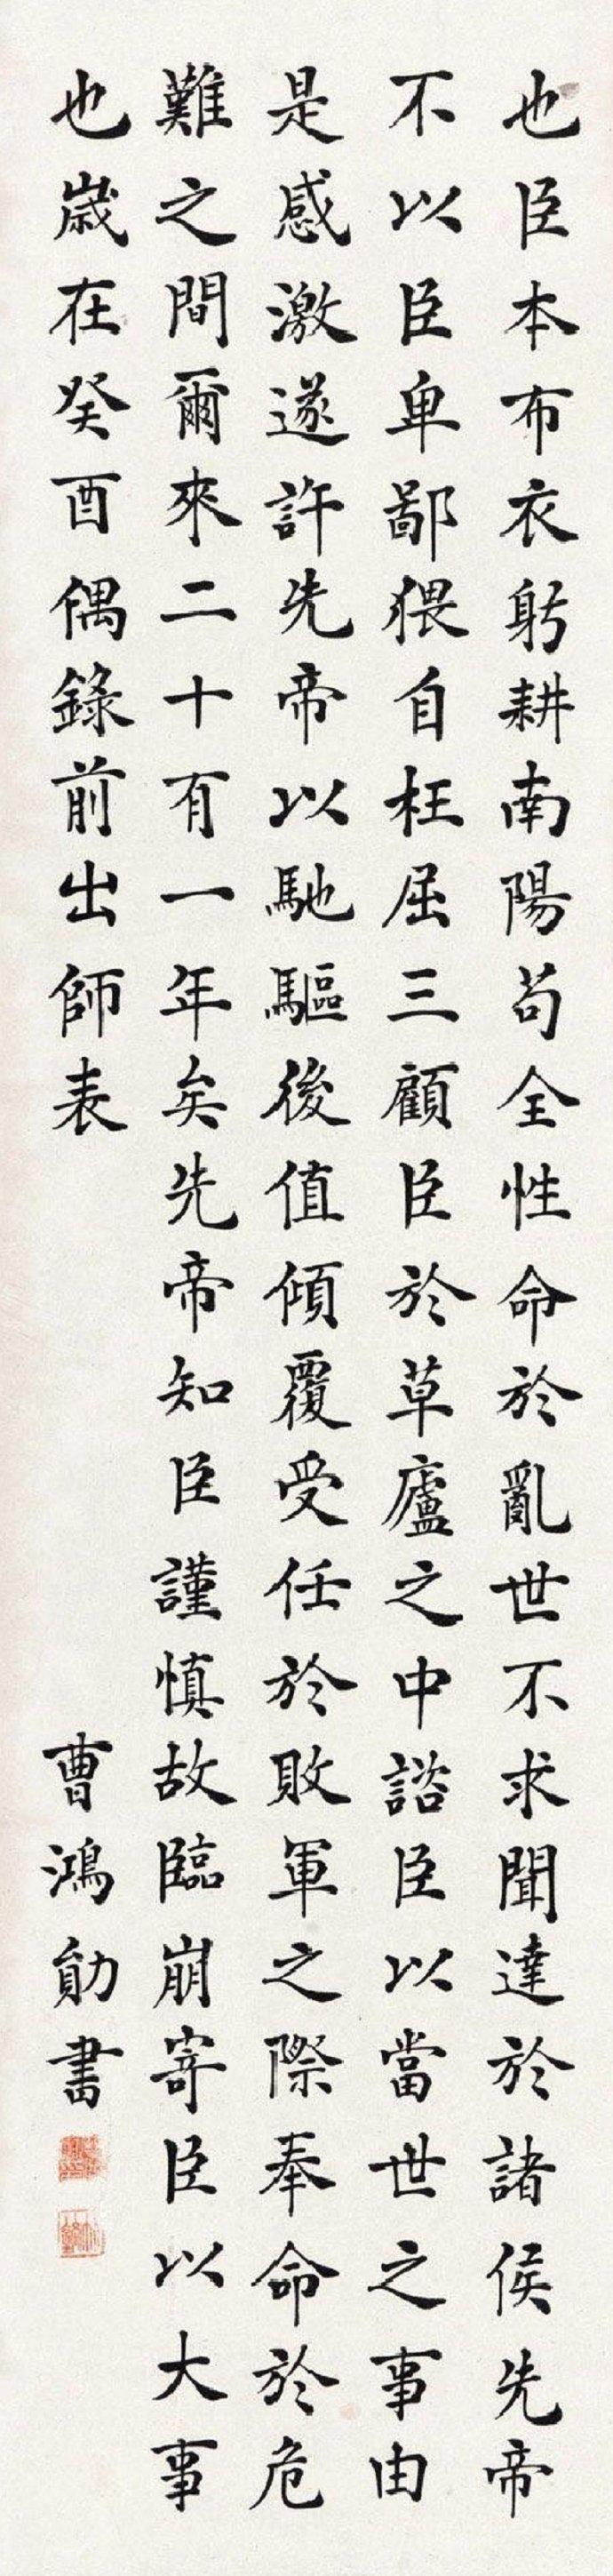 也臣本布衣躬耕南陽苟全性命於亂世不求聞達於諸侯先帝
不以臣卑鄙猥自枉屈三顧臣於草廬之中諮臣以當世之事由
是感激遂許先帝以馳驅後值傾覆受任於敗軍之際奉命於危
難之間爾來二十有一年矣先帝知臣謹慎故臨崩寄臣以大事
也歲在癸酉偶錄前出師表
曹鴻勛書